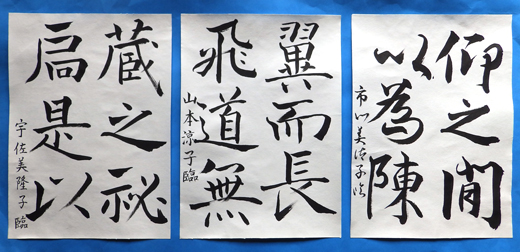 仰之間
以為陳
翼而長
飛道無
山本涼子臨
蔵之祕
扃是以
宇佐美隆子臨